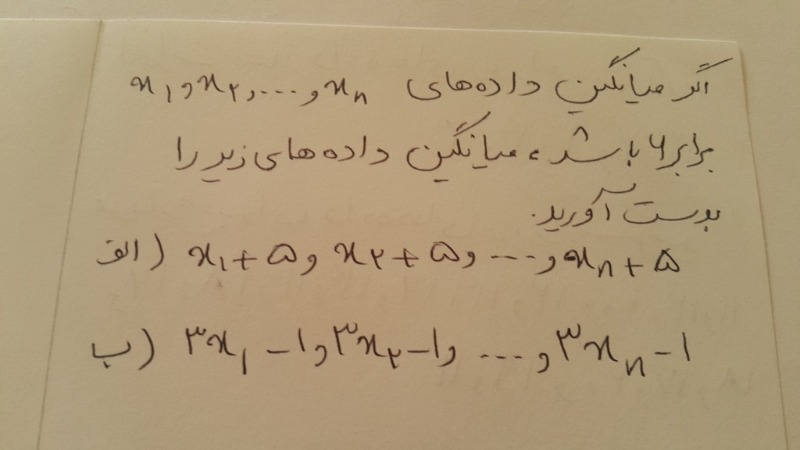 اگر میانگین داده‌های x₁ و x₂ و ... و xₙ
برابر ۶ باشد، میانگین داده‌های زیر را
بدست آورید.
الف) x₁ + ۵ و x₂ + ۵ و ... و xₙ + ۵
ب) ۳x₁ - ۱ و ۳x₂ - ۱ و ... و ۳xₙ - ۱